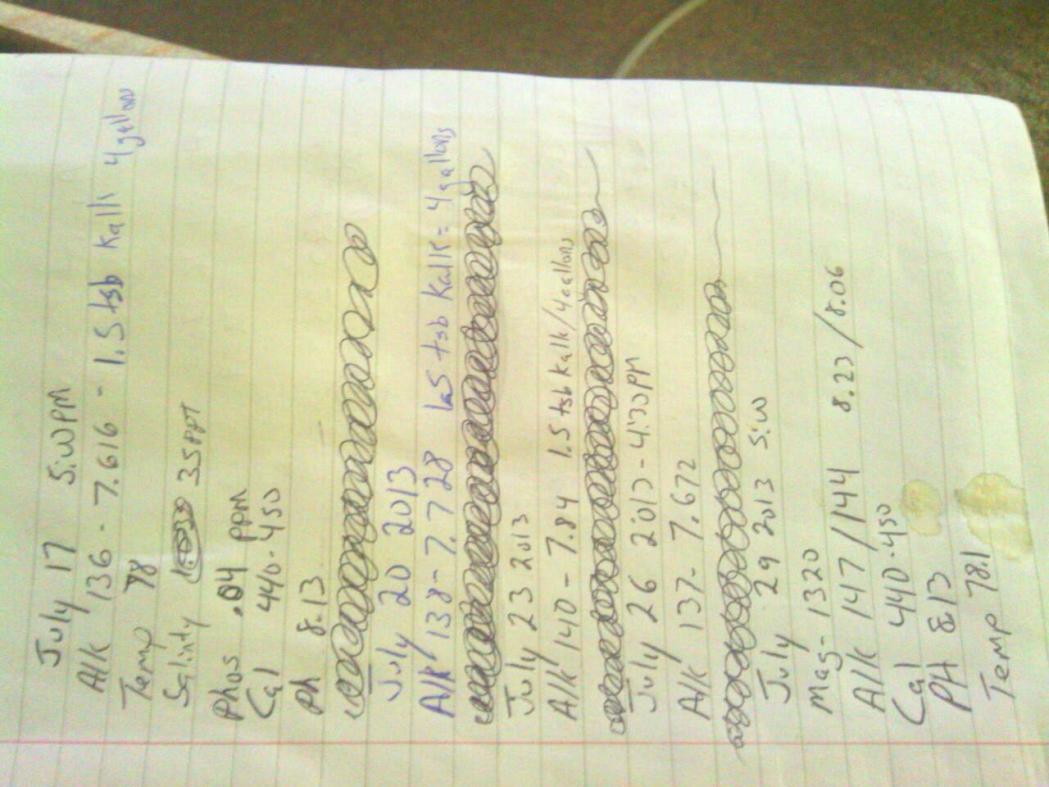 July 17 5:00PM
Alk 136 - 7.616 - 1.5 tsb Kalk 4gallons
Temp 78
Salinity 35PPT
Phos .04 PPM
Cal 440-450
Ph 8.13
July 20 2013
Alk 138-7.728 1.5 tsb Kalk = 4gallons
July 23 2013
Alk 140 - 7.84 1.5 tsb Kalk/4gallons
July 26 2013 - 4:30PM
Alk 137- 7.672
July 29 2013 5:00
Mag- 1320
Alk 147/144 8.23/8.06
Cal 440-450
PH 8.13
Temp 78.1